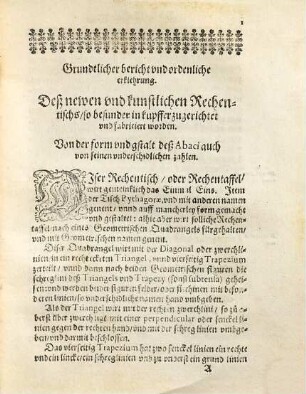 1
Gründtlicher bericht vnd ordenliche
erklehrung.
Deß newen vnd kunstlichen Rechen-
tischs/ so besunder in kupffer zugerichtet
vnd fabriciert worden.
Von der form vnd gstalt deß Abaci auch
von seinen vnderschidlichen zahlen.
DIser Rechentisch / oder Rechentaffel/
wirt gemeinklich das Einmal Eins. Item
der Tisch Pythagore, vnd mit anderen namen
genent/ vnd auff mancherley form gemacht
vnd gestaltet: allhie aber wirt solliche Rechen-
taffel nach eines Geometrischen Quadrangels fürgehalten/
vnd mit Geometrischen namen genent.
Diser Quadrangel wirt mit der Diagonal oder zwerchli-
nien in ein rechtecketen Triangel, vnnd vierseitig Trapezium
zerteilt / vnnd dann noch beiden Geometrischen figuren die
schreglinien deß Triangels vnd Trapezij (sonst subtensa) gehei-
sen/ vnd werden beider figuren felder oder fächmen mit beson-
deren linien so vnderschidliche namen hand vmbgeben.
Als der Triangel wirt mit der rechten zwerchlini/ so zu o-
berst über zwerch ligt mit einer perpendicular oder senckel li-
nien gegen der rechten hand/ vnd mit der schreg linien vmbge-
ben/ vnd darmit beschlossen.
Das vierseitig Trapezium hat zwo senckel linien ein rechte
vnd ein lincke/ ein schreglinien vnd zu vnderst ein grund linien
A